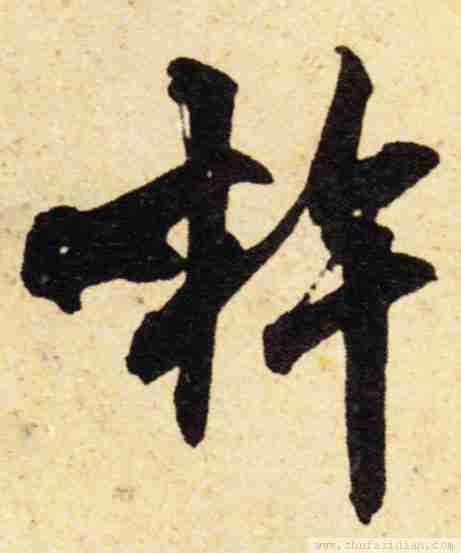 杵
www.shufazidian.com